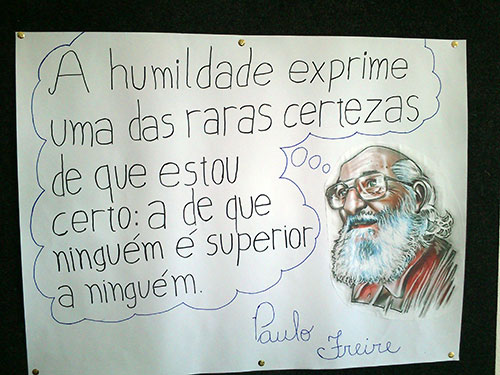 A humildade exprime
uma das raras certezas
de que estou
certo: a de que
ninguém é superior
a ninguém.
Paulo Freire